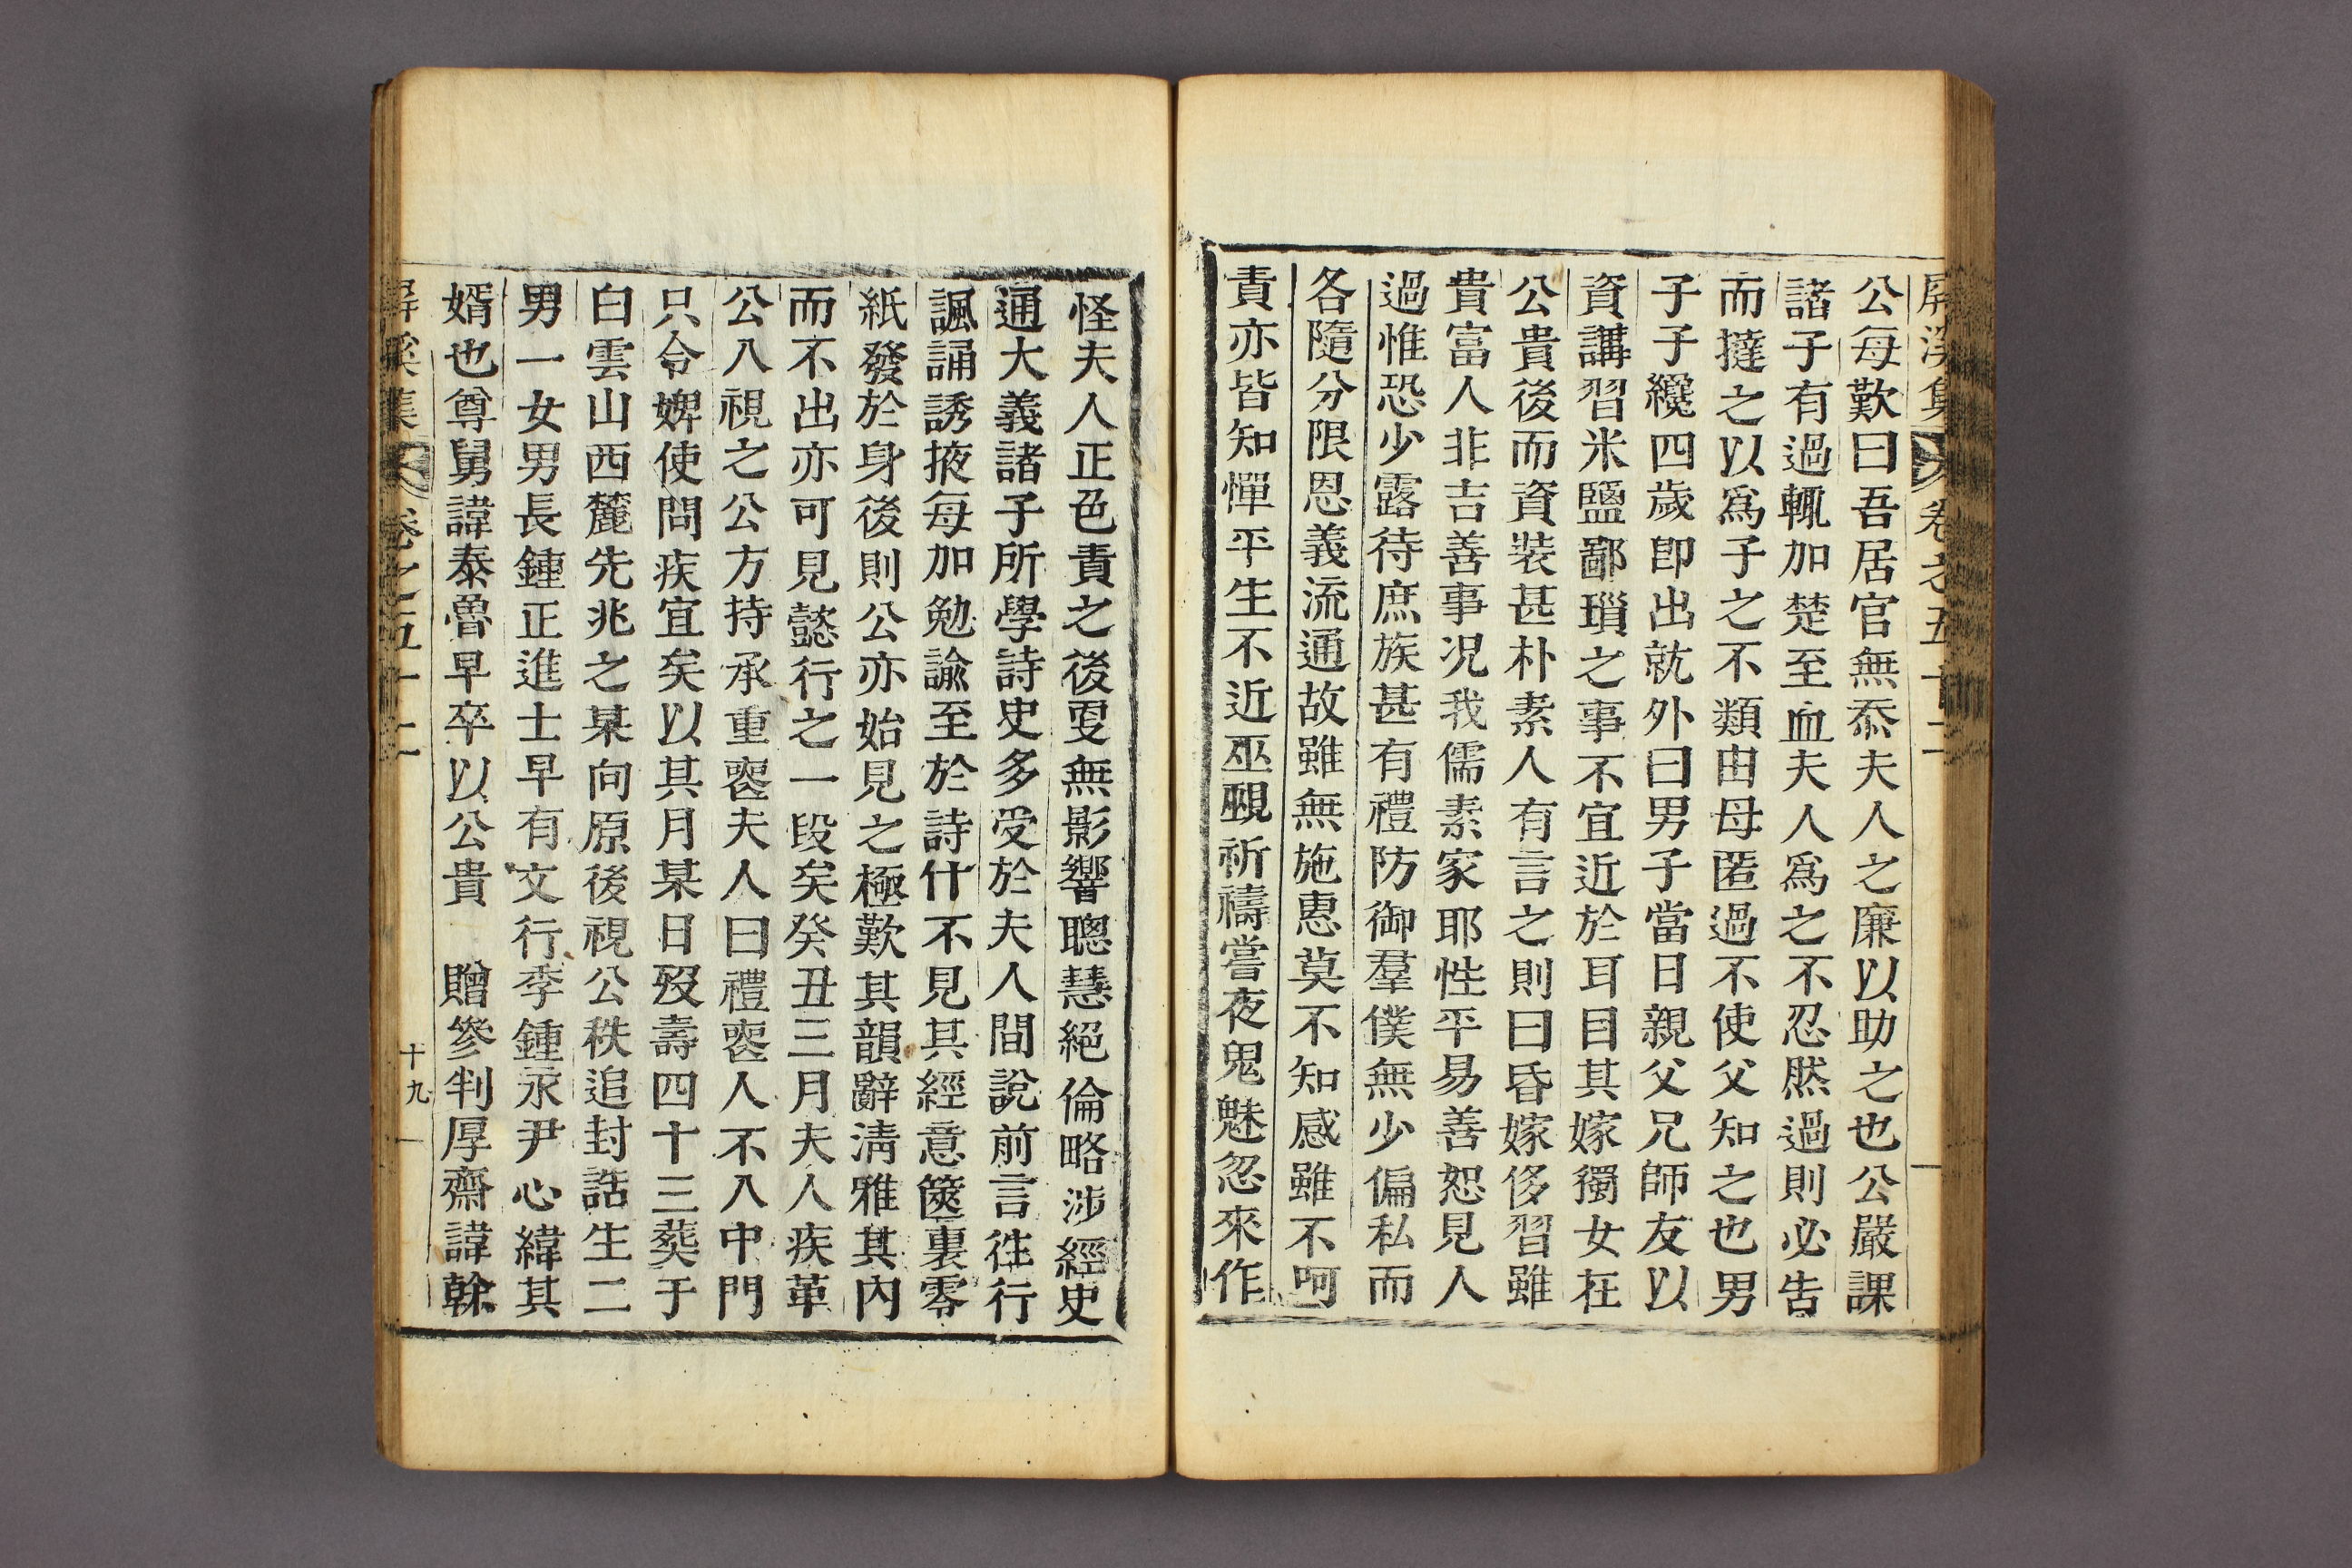 屛溪集 卷之五十二
公每歎曰吾居官無忝夫人之廉以助之也公嚴課
諸子有過輒加楚至血夫人爲之不忍然過則必告
而撻之以爲子之不類由母匿過不使父知之也男
子子纔四歲卽出就外曰男子當日親父兄師友以
資講習米鹽鄙瑣之事不宜近於耳目其嫁獨女在
公貴後而資裝甚朴素人有言之則曰昏嫁侈習雖
貴富人非吉善事况我儒素家耶性平易善恕見人
過惟恐少露待庶族甚有禮防御羣僕無少偏私而
各隨分限恩義流通故雖無施惠莫不知感雖不呵
責亦皆知憚平生不近巫覡祈禱嘗夜鬼魅忽來作
怪夫人正色責之後更無影響聰慧絕倫略涉經史
通大義諸子所學詩史多受於夫人間說前言往行
諷誦誘掖每加勉諭至於詩什不見其經意篋裏零
紙發於身後則公亦始見之極歎其韻辭淸雅其內
而不出亦可見懿行之一段矣癸丑三月夫人疾革
公入視之公方持承重喪夫人曰禮喪人不入中門
只令婢使問疾宜矣以其月某日歿壽四十三葬于
白雲山西麓先兆之某向原後視公秩追封誥生二
男一女男長鍾正進士早有文行季鍾永尹心緯其
婿也尊舅諱泰魯早卒以公貴 贈參判厚齋諱榦
屛溪集 卷之五十二 十九